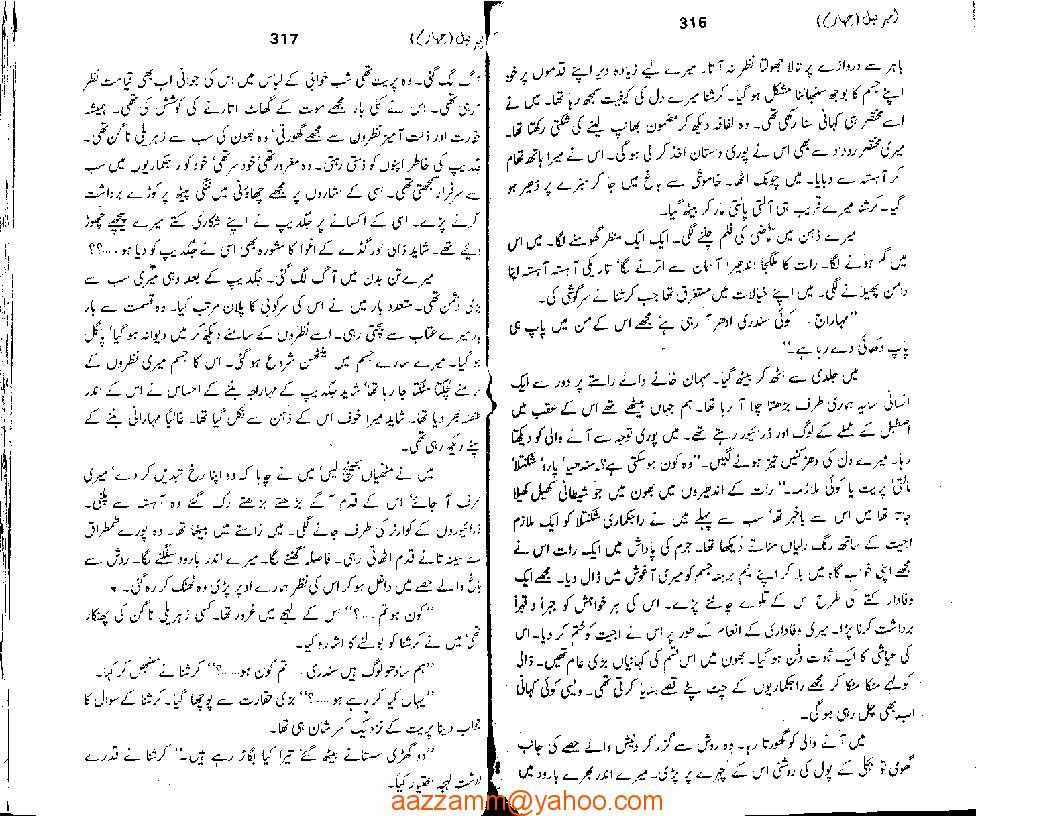 316
باہر سے دروازے پر تالا جھولتا نظر نہ آتا۔ میرے لیے زیادہ دیر اپنے قدموں پر خود
اپنے جسم کا بوجھ سنبھالنا مشکل ہو گیا۔ کرشنا میرے دل کی کیفیت سمجھ رہا تھا۔ میں نے
اسے مختصر ہی کہانی سنا رکھی تھی۔ وہ لفافہ دیکھ کر مضمون بھانپ لینے کی شکتی رکھتا تھا۔
میری مختصر روداد سے بھی اس نے پوری داستان اخذ کر لی ہو گی۔ اس نے میرا ہاتھ تھام
کر آہستہ سے دبایا۔ میں چونک اٹھا۔ خاموشی سے باغ میں جا کر سبزے پر ڈھیر ہو
گیا۔ کرشنا میرے قریب ہی آلتی پالتی مار کر بیٹھ گیا۔
میرے ذہن میں ماضی کی فلم چلنے لگی۔ ایک ایک منظر گھومنے لگا۔ میں اس
میں گم ہونے لگا۔ رات کا ملگجا اندھیرا آسمان سے اترنے لگا' تاریکی آہستہ آہستہ اپنا
دامن پھیلانے لگی۔ میں اپنے خیالات میں مستغرق تھا جب کرشنا نے سرگوشی کی۔
"مہاراج۔ کوئی سندری ادھر آ رہی ہے' مجھے اس کے من میں پاپ ہی
پاپ دکھائی دے رہا ہے۔"
میں جلدی سے اٹھ کر بیٹھ گیا۔ مہمان خانے والے راستے پر دور سے ایک
انسانی سایہ ہماری طرف بڑھتا چلا آ رہا تھا۔ ہم جہاں بیٹھے تھے اس کے عقب میں
اصطبل کے عملے کے لوگ اور ڈرائیور رہتے تھے۔ میں پوری توجہ سے آنے والی کو دیکھتا
رہا۔ میرے دل کی دھڑکنیں تیز ہونے لگیں۔ "وہ کون ہو سکتی ہے؟ سندھیا' پاروا' شکنتلا'
مالتی' پریت یا کوئی ملازمہ۔" رات کے اندھیروں میں بھون میں جو شیطانی کھیل کھیلا
جاتا تھا میں اس سے باخبر تھا' سب سے پہلے میں نے راجکماری شکنتلا کو ایک ملازم
اجیت کے ساتھ رنگ رلیاں مناتے دیکھا تھا۔ جرم کی پاداش میں ایک رات اس نے
مجھے اپنی خواب گاہ میں بلا کر اپنے نیم برہنہ جسم کو میری آغوش میں ڈال دیا۔ مجھے ایک
وفادار کتے کی طرح اس کے تلوے چاٹنے پڑے۔ اس کی ہر خواہش کو جبراً و قہراً
برداشت کرنا پڑا۔ میری وفاداری کے انعام کے طور پر اس نے اجیت کو ختم کر دیا۔ اس
کی عیاشی کا ایک ثبوت دفن ہو گیا۔ بھون میں اس قسم کی کہانیاں بڑی عام تھیں۔ ڈالی
کولہے مٹکا مٹکا کر مجھے راجکماریوں کے چٹ پٹے قصے سنایا کرتی تھی۔ ویسی کوئی کہانی
اب بھی چل رہی ہو گی۔
میں آنے والی کو گھورتا رہا۔ وہ روش سے گزر کر رہائش والے حصے کی جانب
گھومی تو بجلی کے پول کی روشنی اس کے چہرے پر پڑی۔ میرے اندر بھرے بارود میں
317
آگ لگ گئی۔ وہ پریت تھی شب خوابی کے لباس میں اس کی جوانی اب بھی قیامت نظر
آ رہی تھی۔ اس نے کئی بار مجھے موت کے گھاٹ اتارنے کی کوشش کی تھی۔ ہمیشہ
حقارت اور ذلت آمیز نظروں سے مجھے گھورتی' وہ بھون کی سب سے زہریلی ناگن تھی۔
جگدیپ کی خاطر اپنوں کو ڈستی رہتی۔ وہ مغرور تھی' خود سر تھی' خود کو راجکماریوں میں سب
سے سرفراز سمجھتی تھی۔ اسی کے اشاروں پر مجھے چھاؤنی میں ننگی پیٹھ پر کوڑے برداشت
کرنے پڑے۔ اسی کے اکسانے پر جگدیپ نے اپنے شکاری کتے میرے پیچھے چھوڑ
دیئے تھے۔ شاید ڈالی اور گڈے کے اغوا کا مشورہ بھی اسی نے جگدیپ کو دیا ہو ....؟؟
میرے تن بدن میں آگ لگ گئی۔ جگدیپ کے بعد وہی میری سب سے
بڑی دشمن تھی۔ متعدد بار میں نے اس کی سرکوبی کا پلان مرتب کیا۔ وہ قسمت سے بار
بار میرے عتاب سے بچتی رہی۔ اسے نظروں کے سامنے دیکھ کر میں دیوانہ ہو گیا' پاگل
ہو گیا۔ میرے سارے جسم میں اینٹھن شروع ہو گئی۔ اس کا جسم میری نظروں کے
سامنے لچکتا مٹکتا جا رہا تھا' شاید جگدیپ کے مہاراجہ بننے کے احساس نے اس کے اندر
طنطنہ بھر دیا تھا۔ شاید میرا خوف اس کے ذہن سے نکل گیا تھا۔ غالباً مہارانی بننے کے
سپنے دیکھ رہی تھی۔
میں نے مٹھیاں بھینچ لیں' میں نے چاہا کہ وہ اپنا رخ تبدیل کر دے' میری
طرف آ جائے' اس کے قدم آگے بڑھتے بڑھتے رک گئے وہ آہستہ سے پلٹی۔
ڈرائیوروں کے کوارٹر کی طرف جانے لگی۔ میں راستے میں بیٹھا تھا۔ وہ پورے طمطراق
سے سینہ تانے قدم اٹھاتی رہی۔ فاصلہ گھٹنے لگا۔ میرے اندر بارود سلگنے لگا۔ روش سے
باغ والے حصے میں داخل ہو کر اس کی نظر ہمارے اوپر پڑی وہ ٹھٹک کر رہ گئی۔
"کون ہو تم ....؟" اس کے لہجے میں غرور تھا۔ کسی زہریلی ناگن کی پھنکار
تھی' میں نے کرشنا کو بولنے کا اشارہ کیا۔
"ہم سادھو لوگ ہیں سندری۔ تم کون ہو ....؟" کرشنا نے سنبھل کر کہا۔
"یہاں کیا کر رہے ہو ....؟" بڑی حقارت سے پوچھا گیا۔ کرشنا کے سوال کا
جواب دینا پریت کے نزدیک کسر شان ہی تھا۔
"دو گھڑی سستانے بیٹھ گئے' تیرا کیا بگاڑ رہے ہیں۔" کرشنا نے قدرے
درشت لہجہ اختیار کیا۔
aazzamm@yahoo.com